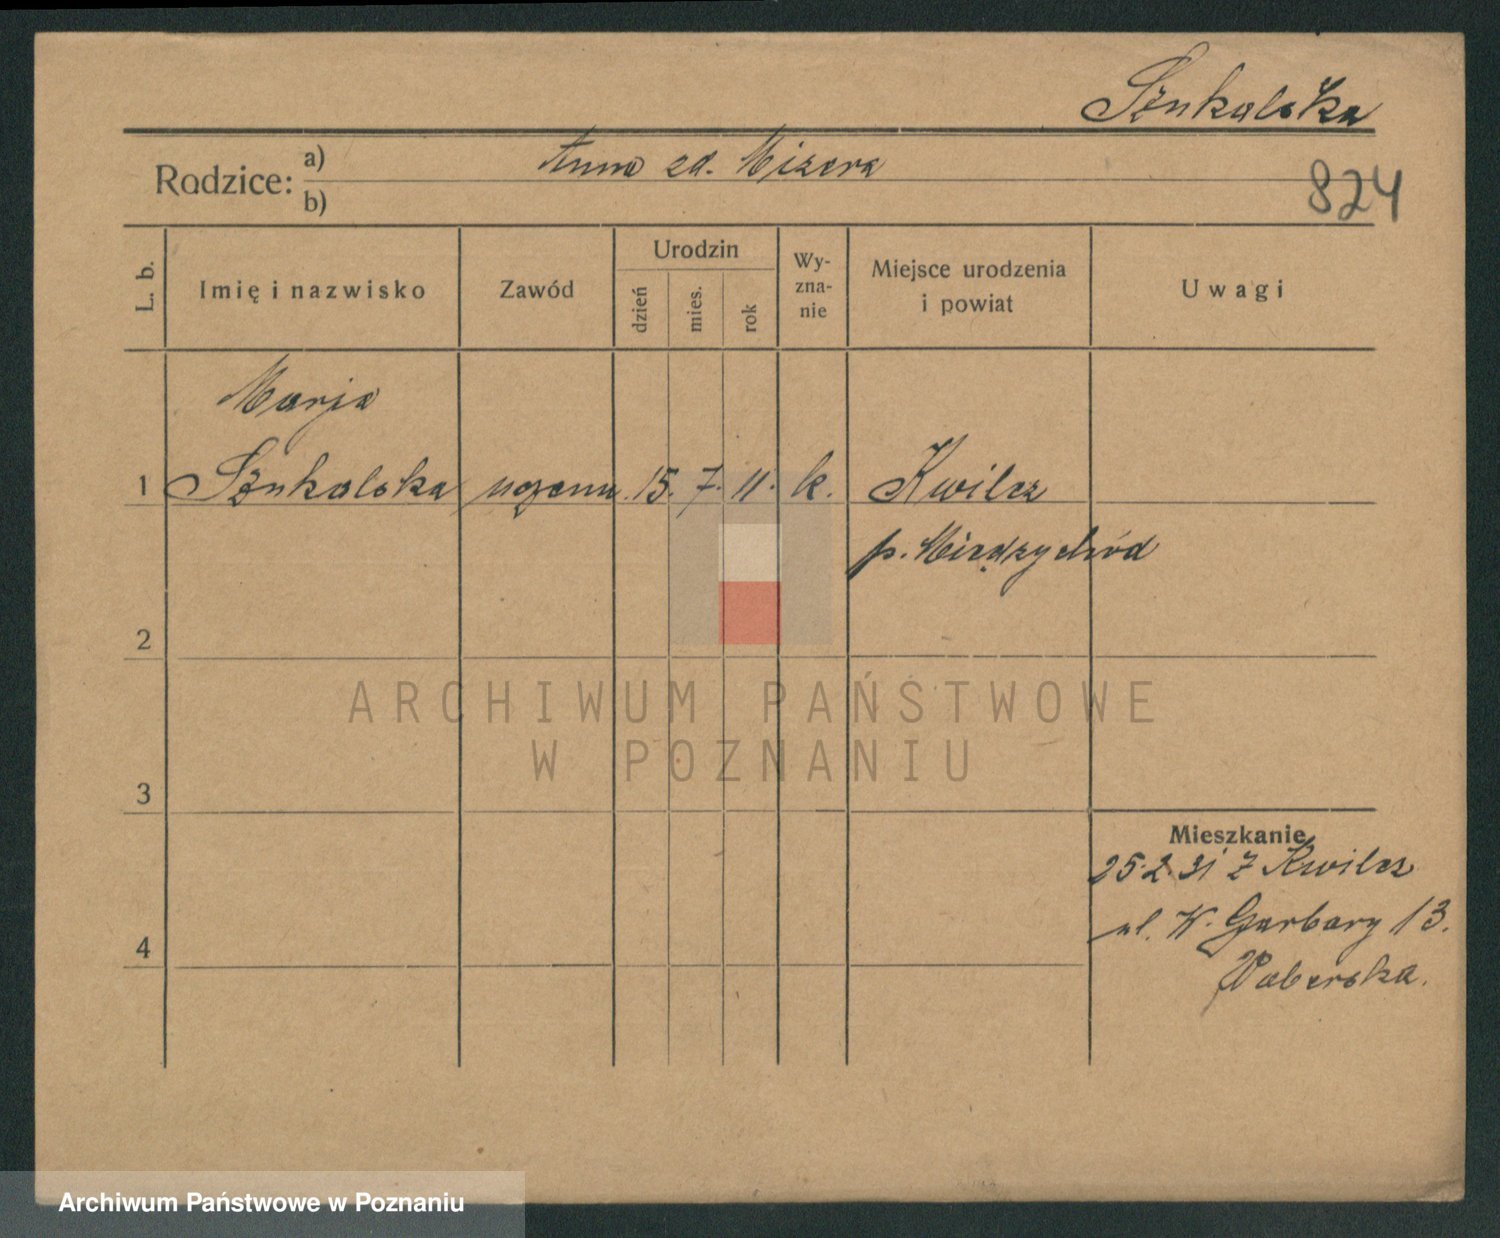 Sznkalska
Rodzice: a) Anna zd. Mizera
b)
824
L. b.
Imię i nazwisko
Zawód
Urodzin
dzień
mies.
rok
Wy-
zna-
nie
Miejsce urodzenia
i powiat
Uwagi
Marja
1 Szukalska uczenn. 15. 7. 11. k. Kwilcz
p. Międzychód
2
3
4
Mieszkanie
25.2.31 z Kwilcz
ul. W. Garbary 13.
ARCHIWUM PAŃSTWOWE
W POZNANIU
Archiwum Państwowe w Poznaniu